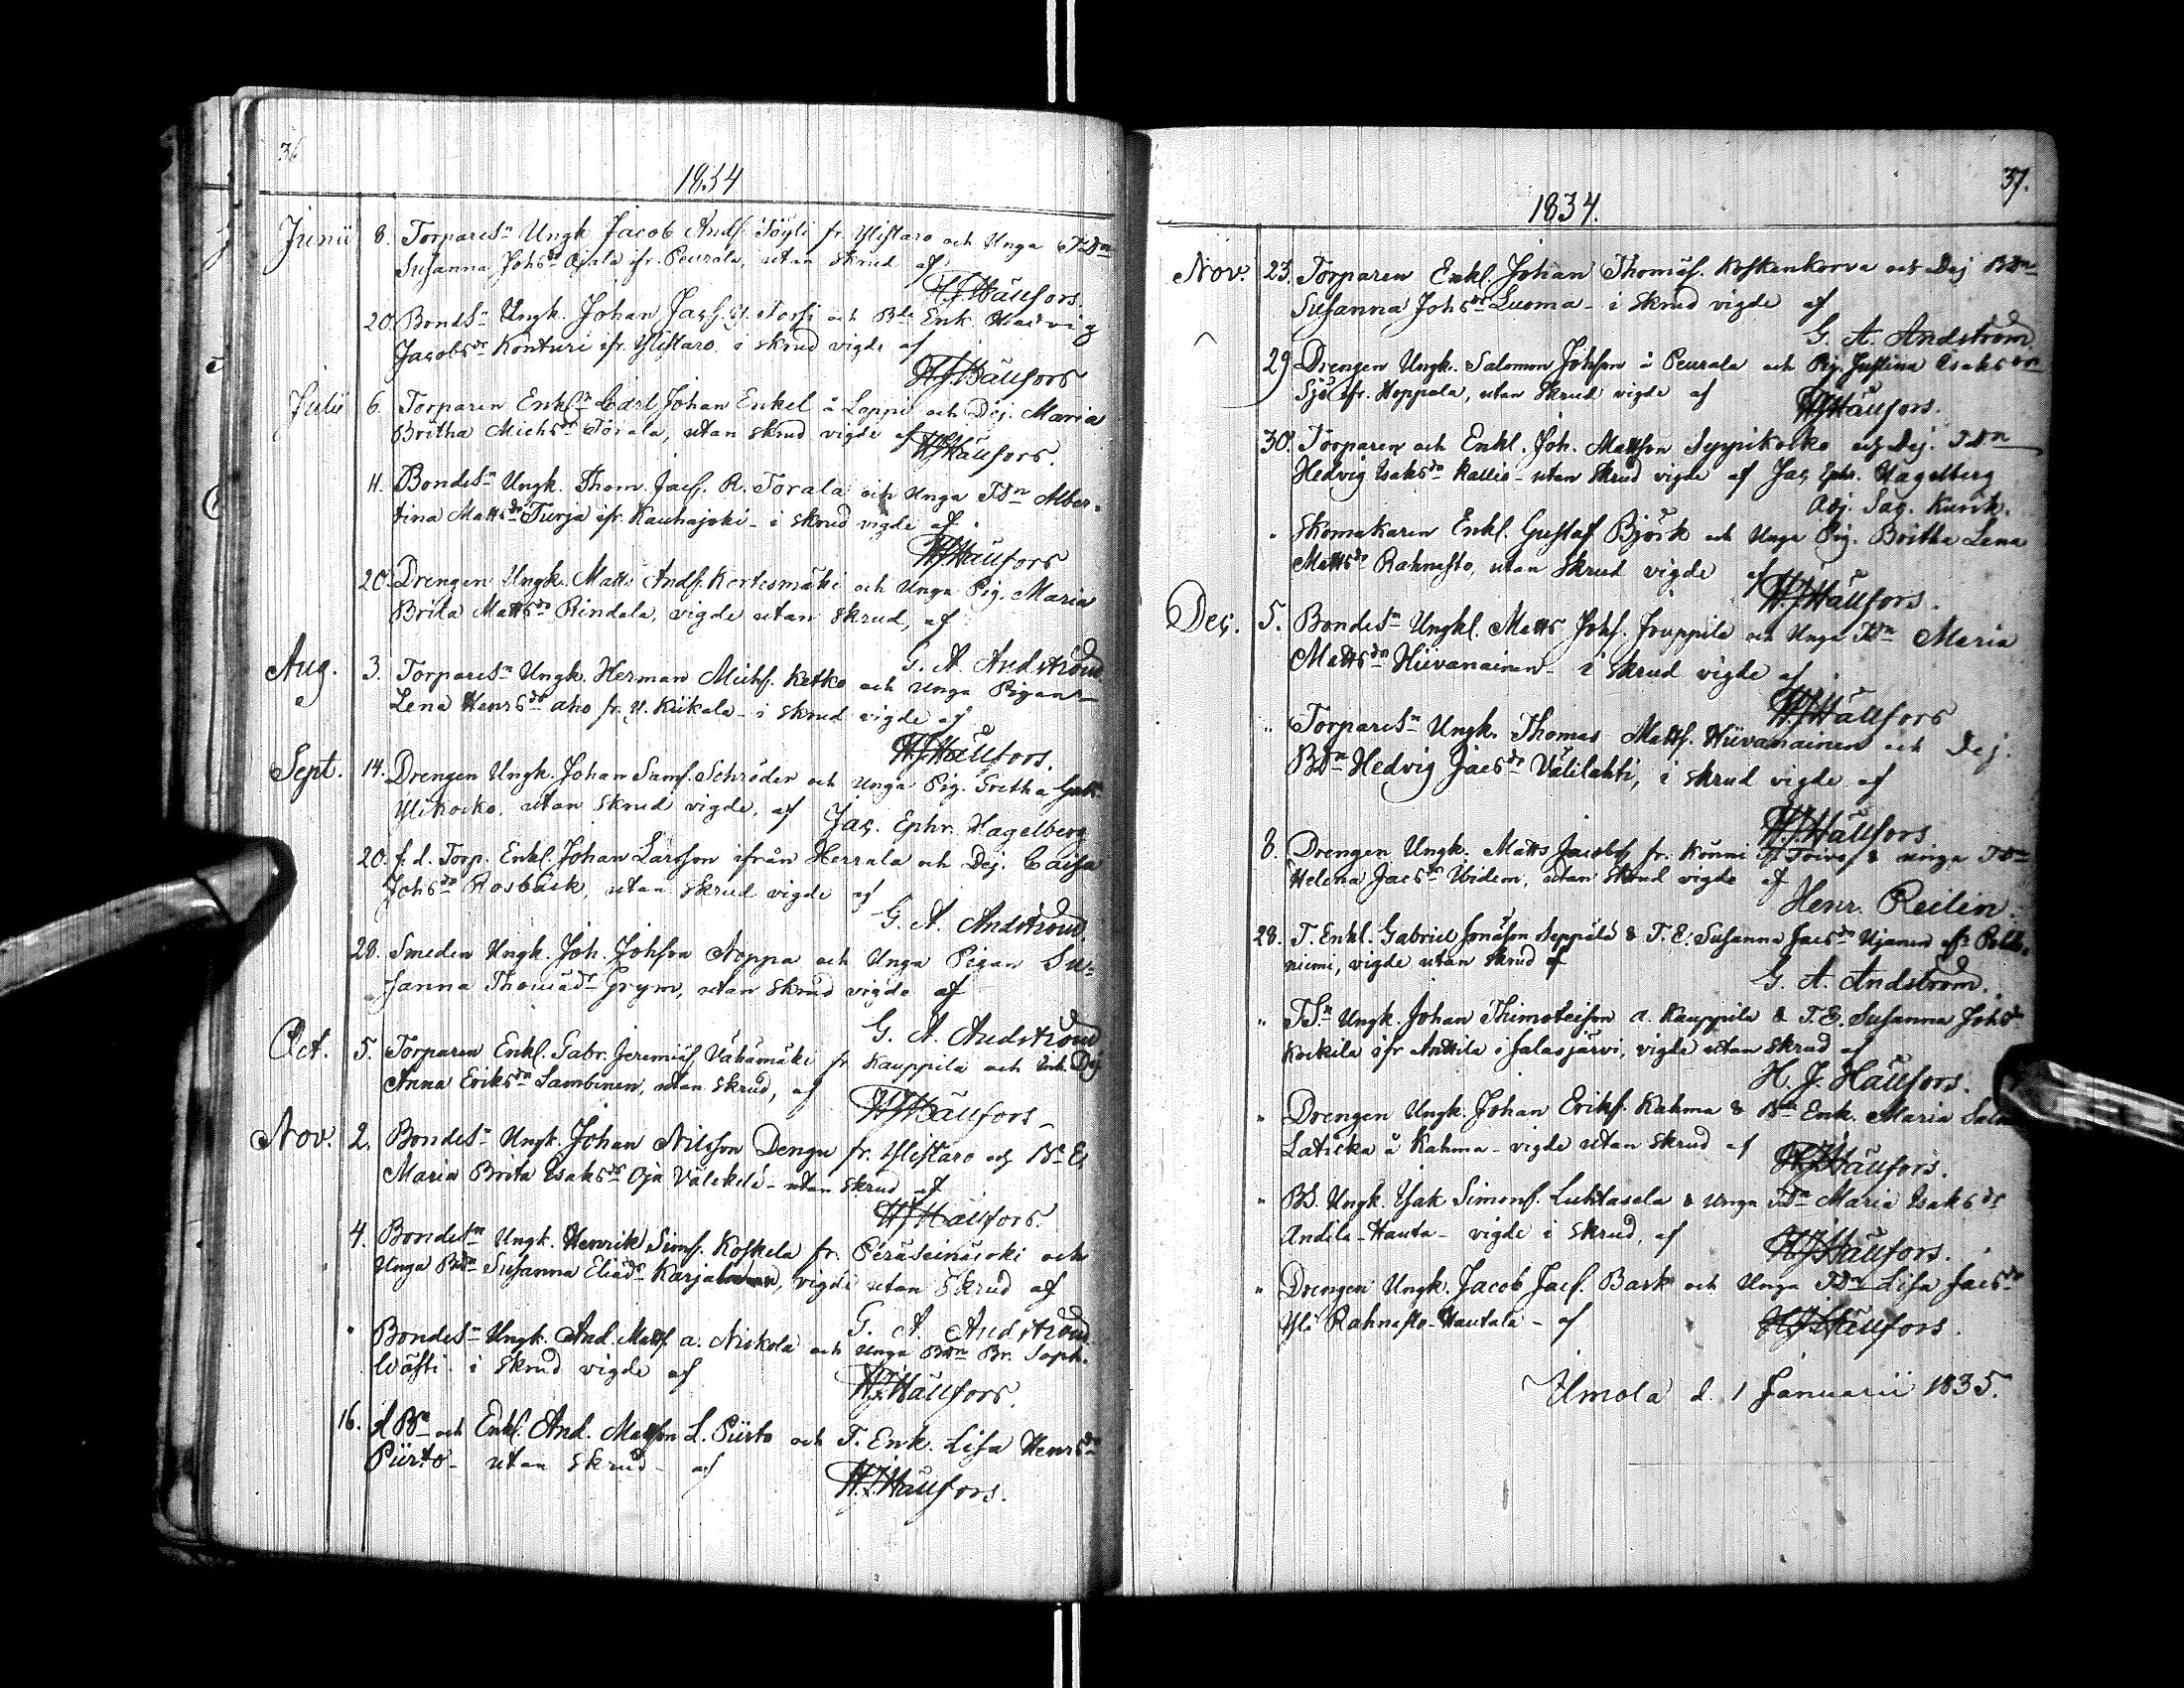 36
1834
Junii 8. Torpareſn Ungk. Jacob Andſ. Töyli fr. Yliſtaro och Unga TDn
Suſanna Johsdr Ojala ifr. Peurala, utan skrud af
HJHällfors.
20. Bondsn Ungk. Johan Jacſ. Y. Torſi och Bde Enk. Hedvig
Jacobsdr Konturi ifr. Yliſtaro, i skrud vigde af
HJHällfors
Julii 6. Torparen Enkln Carl Johan Enkel å Loppi och Dej. Maria
Britha Michsdr Torala, utan skrud vigde af HJHällfors.
11. Bondesn Ungk. Thom. Jacſ. R. Torala och Unga TDn Alber-
tina Mattsdr Turja ifr. Kauhajoki - i skrud vigde af
HJHällfors
20. Drengen Ungk. Matts Andſ. Kortesmäki och Unga Pig. Maria
Brita Mattsdr Rindala, vigde utan skrud, af
G. A. Andström
Aug. 3. Torparesn Ungk. Herman Michſ. Ketko och Unga Pigan
Lena Henrsdr aho fr. Y. Kiikala - i skrud vigde af
HJHällfors.
Sept. 14. Drengen Ungk. Johan Samſ. Schröder och Unga Pig. Gretha
Ylikoſko, utan skrud vigde, af Jac. Ephr. Hagelberg
20. f.d. Torp. Enkl. Johan Larsſon ifrån Herrala och Dej. Caiſa
Johsdr Rosbäck, utan skrud vigde af
G. A. Andström.
28. Smeden Ungk. Joh. Johſon Noppa och Unga Pigan Su-
ſanna Thomädr Grym, utan skrud vigde af
G. A. Andström
Oct. 5. Torparen Enkl. Gabr. Jeremiäſ. Vähämäki fr Kauppila och Enk. Dej
Anna Eriksdr Lambinen, utan skrud, af
HJHällfors
Nov. 2. Bondesn Ungk. Johan Nilsſon Dengu fr. Yliſtaro och Bde E.
Maria Brita Isaksdr Oja Välckilä - utan skrud af
HJHällfors.
4. Bondesn Ungk. Henrik Simſ. Koſkela fr. Peräseinäjoki och
Unga BDn Suſanna Eliädr Karja, vigde utan skrud af
G. A. Andström
" Bondesn Ungk. And. Mattſ. a. Niskola och Unga BDn Br. Soph.
Wäſti i skrud vigde af
HJHällfors.
16. och Enkl. And. Mattſon L. Piirto och T. Enk. Liſa Henrsdr
Piirto - utan skrud - af
H.J.Hällfors.
37.
1834.
Nov. 23. Torparen Enkl. Johan Thomäſ. Koſkenkorva och Dej BDn
Suſanna Johsdr Luoma - i skrud vigde af
G. A. Andström
29 Drengen Ungk. Salomon Johſon å Peurala och Pig. Juſtina Isaksdr
Sjö ifr. Hoppala, utan skrud vigde af HJHällfors.
30. Torparen och Enkl. Joh. Mattſon Seppikoſko och Dej. TDn
Hedvig Isaksdr Kallio - utan skrud vigde af Jac Ephr. Hagelberg
Adj. Sac. Kurik.
" Skomakaren Enkl. Guſtaf Björk och Unga Pig. Britha Lena
Mattsdr Rahnaſto, utan skrud vigde af
HJHällfors.
Dec. 5. Bondesn Ungkl. Matts Johſ. Jruppila och Unga TDn Maria
Mattsdr Hiivanainen - i skrud vigde af
HJHällfors
" Torparesn Ungk. Thomas Mattſ. Hiivanainen och Dej.
BDn Hedvig Jacsdr Välilahti, i skrud vigde af
HJHällfors.
8. Drengen Ungk. Matts Jacobſ. fr. Könni & unga TDn
Helena Jacsdr Widem, utan skrud vigde af
Henr. Reilin.
28. T. Enkl. Gabriel Jonäſon Seppälä & T.E. Suſanna Jacsdr Ujanen
niemi, vigde utan skrud af
G. A. Andström.
" TSn Ungk. Johan Thimoteiſon a. Kauppila & T.E. Suſanna Johsdr
Kockila ifr Anttila i Jalasjärvi, vigde utan skrud af
H. J. Hällfors.
" Drengen Ungk. Johan Erikſ. Kahma & Bde Enk. Maria
Laticka å Kahma - vigde utan skrud af HJHällfors.
" BS. Ungk. Iſak Simonſ. Luhtasela & Unga TDn Maria Isaksdr
Andila-Hauta - vigde i skrud, af HJHällfors.
" Drengen Ungk. Jacob Jacſ. Bark och Unga TDn Liſa Jacsdr
Yli Rahnaſto-Hautala - af HJHällfors.
Ilmola d. 1 Januarii 1835.